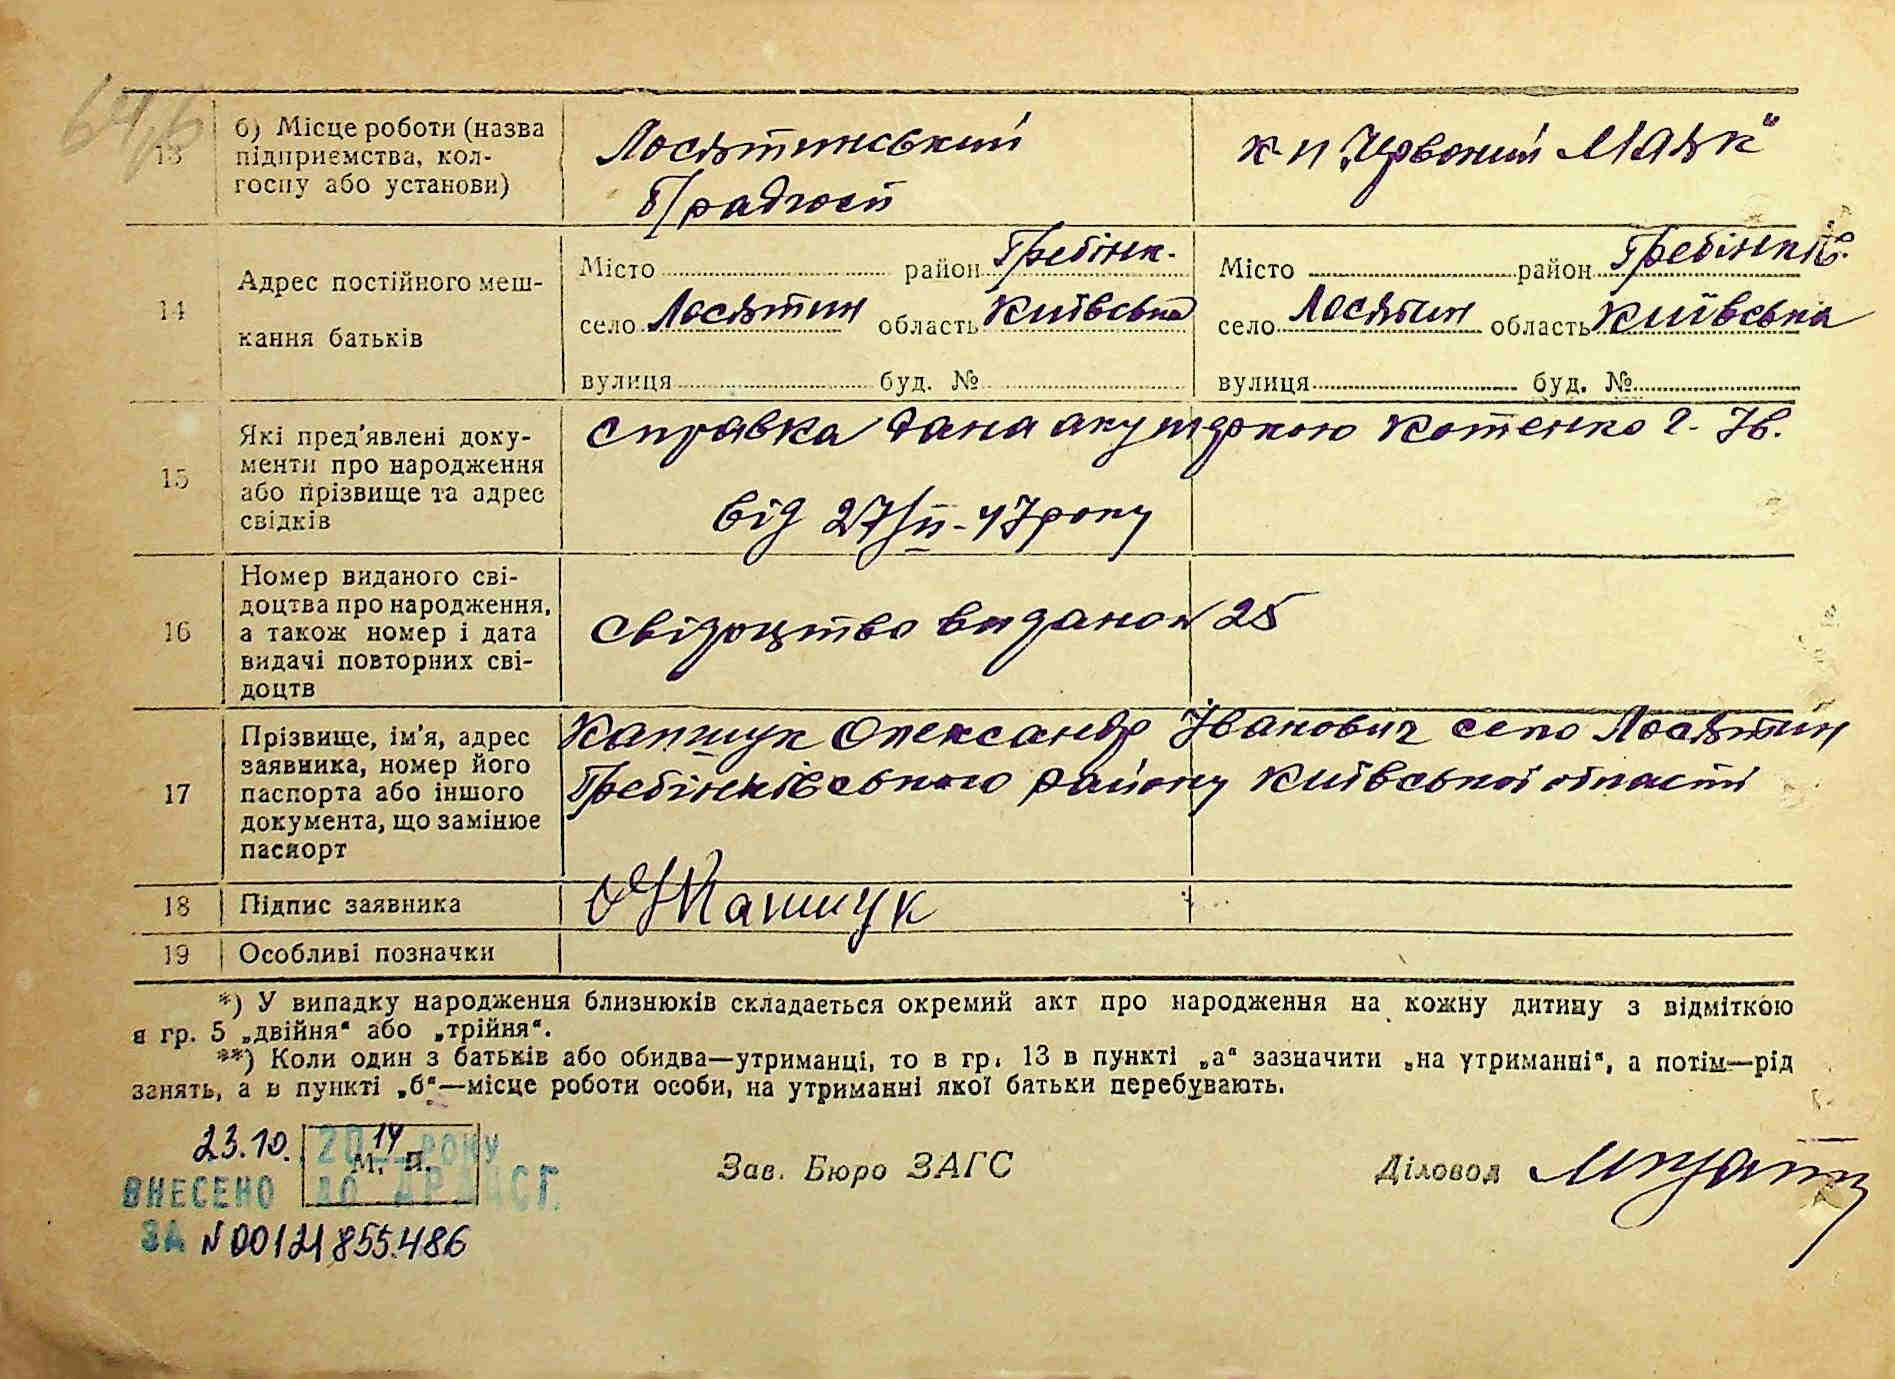 13 б) Місце роботи (назва підприємства, колгоспу або установи)
Лосятинський
б/радгосп
к-п „Червоний Маяк“
14 Адрес постійного мешкання батьків
Місто район Гребінк.
село Лосятин область Київська
вулиця буд. №
Місто район Гребінків.
село Лосятин область Київська
вулиця буд. №
15 Які пред'явлені документи про народження або прізвище та адрес свідків
справка дана акушеркою Котенко Г. Ів.
від 27/II-47 року
16 Номер виданого свідоцтва про народження, а також номер і дата видачі повторних свідоцтв
свідоцтво видано № 25
17 Прізвище, ім'я, адрес заявника, номер його паспорта або іншого документа, що замінює паспорт
Капшук Олександр Іванович село Лосятин
Гребінківського району Київської області
18 Підпис заявника
Капшук
19 Особливі позначки
*) У випадку народження близнюків складається окремий акт про народження на кожну дитину з відміткою
в гр. 5 „двійня“ або „трійня“.
**) Коли один з батьків або обидва—утриманці, то в гр. 13 в пункті „а“ зазначити „на утриманні“, а потім—рід
занять, а в пункті „б“—місце роботи особи, на утриманні якої батьки перебувають.
23.10. 2014 РОКУ
М. П.
ВНЕСЕНО ДО ДРАЦСГ.
ЗА N 00121855486
Зав. Бюро ЗАГС
Діловод